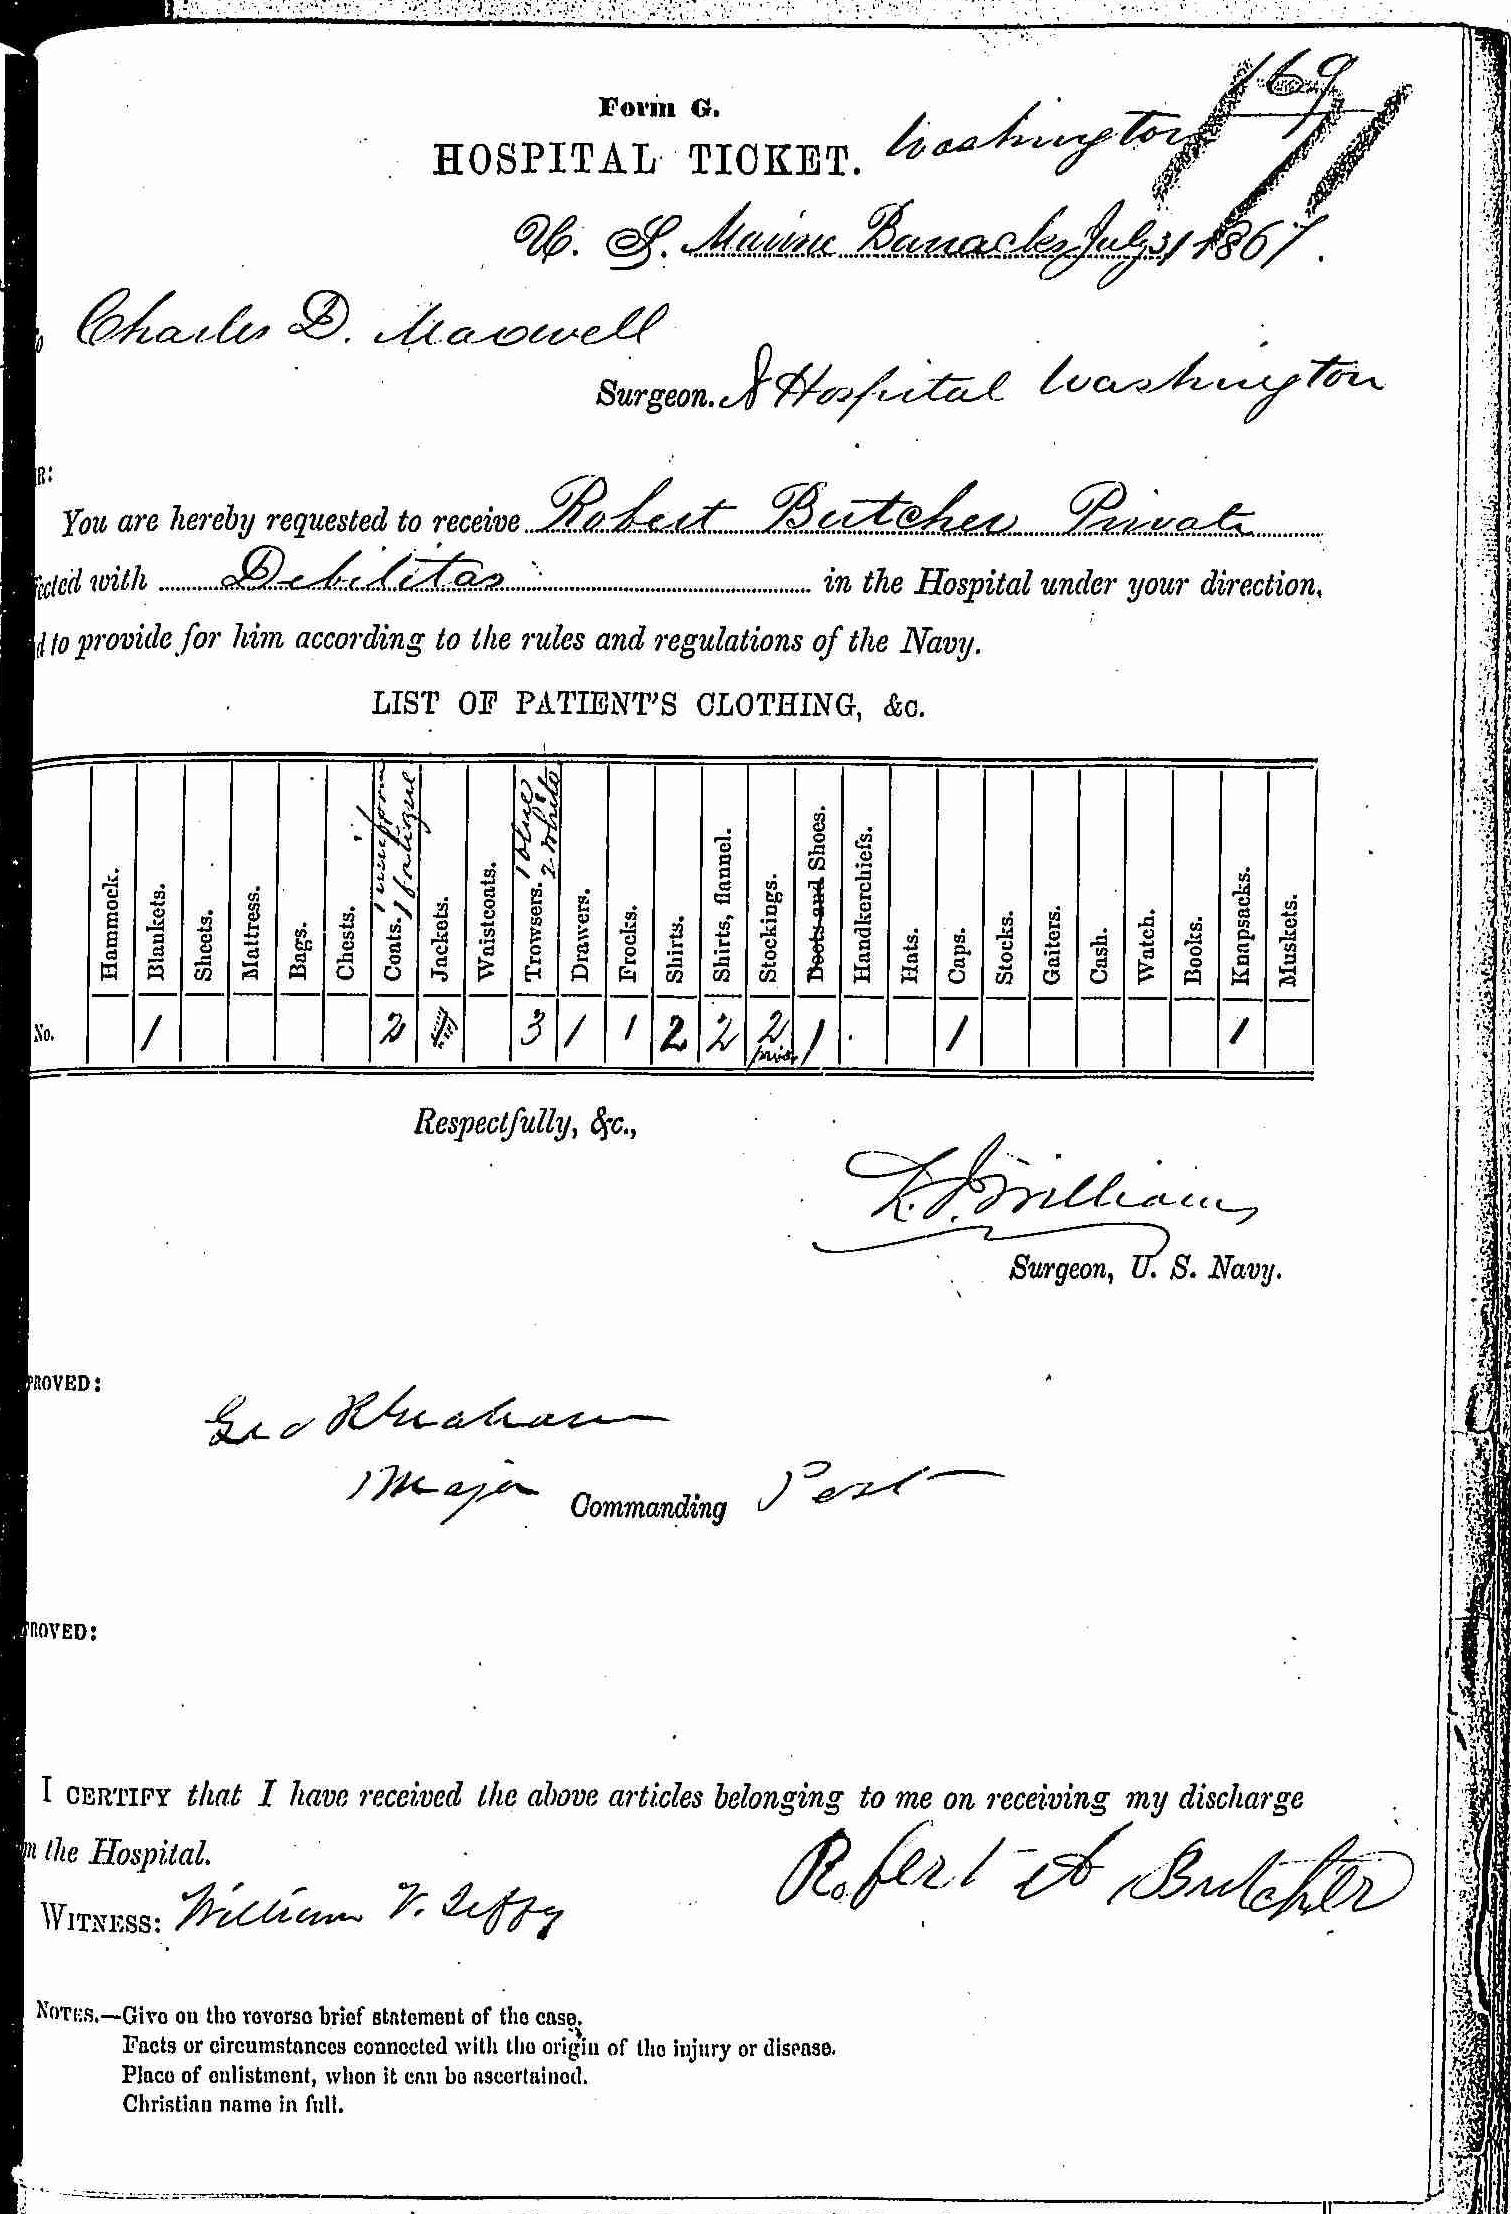 169
171
Form G.
HOSPITAL TICKET. Washington
U. S. Marine Barracks July 31 1867.
Charles D. Maxwell
Surgeon. Hospital Washington
You are hereby requested to receive Robert Butcher Private
with Debilitas in the Hospital under your direction,
to provide for him according to the rules and regulations of the Navy.
LIST OF PATIENT'S CLOTHING, &c.
Hammock. Blankets. Sheets. Mattress. Bags. Chests. Coats. 1 uniform 1 fatigue Jackets. Waistcoats. Trowsers. 1 blue 2 white Drawers. Frocks. Shirts. Shirts, flannel. Stockings. Boots and Shoes. Handkerchiefs. Hats. Caps. Stocks. Gaiters. Cash. Watch. Books. Knapsacks. Muskets.
No. 1 2 3 1 1 2 2 2 pairs 1 1 1
Respectfully, &c.,
Williams
Surgeon, U. S. Navy.
PROVED:
Geo R Graham
Major Commanding Post
PROVED:
I CERTIFY that I have received the above articles belonging to me on receiving my discharge
the Hospital.
Robert A Butcher
WITNESS: William V.
NOTES.—Give on the reverse brief statement of the case.
Facts or circumstances connected with the origin of the injury or disease.
Place of enlistment, when it can be ascertained.
Christian name in full.